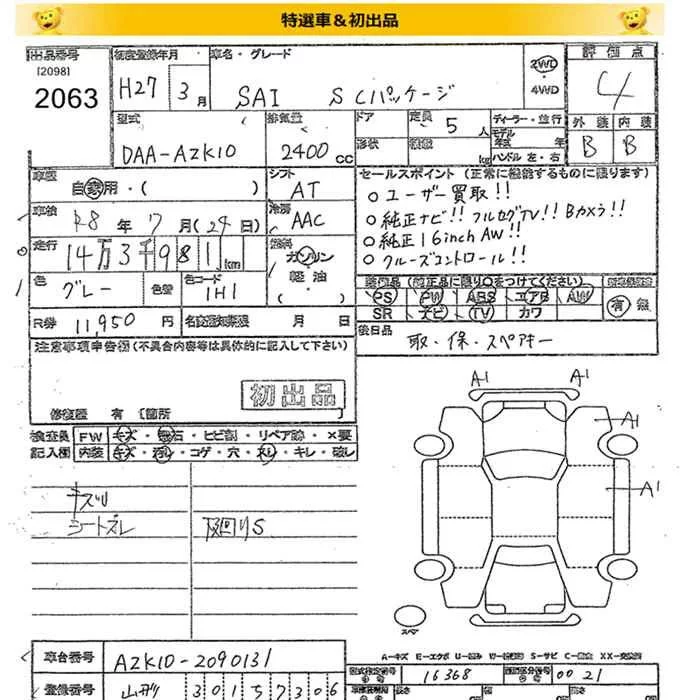 特選車＆初出品
出品番号
[2098]
2063
初度登録年月
H27 3月
車名・グレード
SAI S Cパッケージ
2WD
4WD
評価点
4
型式
DAA-AZK10
排気量
2400 CC
ドア
形状
定員 5 人
積載 kg
ディーラー・並行
モデル年式 年
ハンドル 左・右
外装 内装
B B
車歴
自家用・( )
シフト
AT
セールスポイント (正常に機能するものに限ります)
○ユーザー買取!!
○純正ナビ!! フルセグTV!! Bカメラ!!
○純正16inch AW!!
○クルーズコントロール!!
車検
R8年 7月(24日)
冷房
AAC
走行
14万3千981km
燃料
ガソリン
軽油
色
グレー
色替
色コード
1H1
装備品 (純正品に限り○をつけてください)
PS PW ABS エアB AW
SR ナビ TV カワ
有 無
R券 11,950円
名変期限 月 日
後日品
取・保・スペアキー
注意事項申告欄 (不具合内容等は具体的に記入して下さい)
初出品
修復歴 有 [箇所 ]
検査員
記入欄
FW キズ・飛石・ヒビ割・リペア跡・×要
内装 キズ・汚れ・コゲ・穴・スレ・キレ・破レ
キズU
シートズレ
下回りS
A1
A1
A1
A1
スペア
A－キズ E－エクボ U－凹み S－サビ XX－交換済
車台番号
AZK10-2090131
型式指定番号
16368
類別区分番号
0021
登録番号
301 57306
長さ